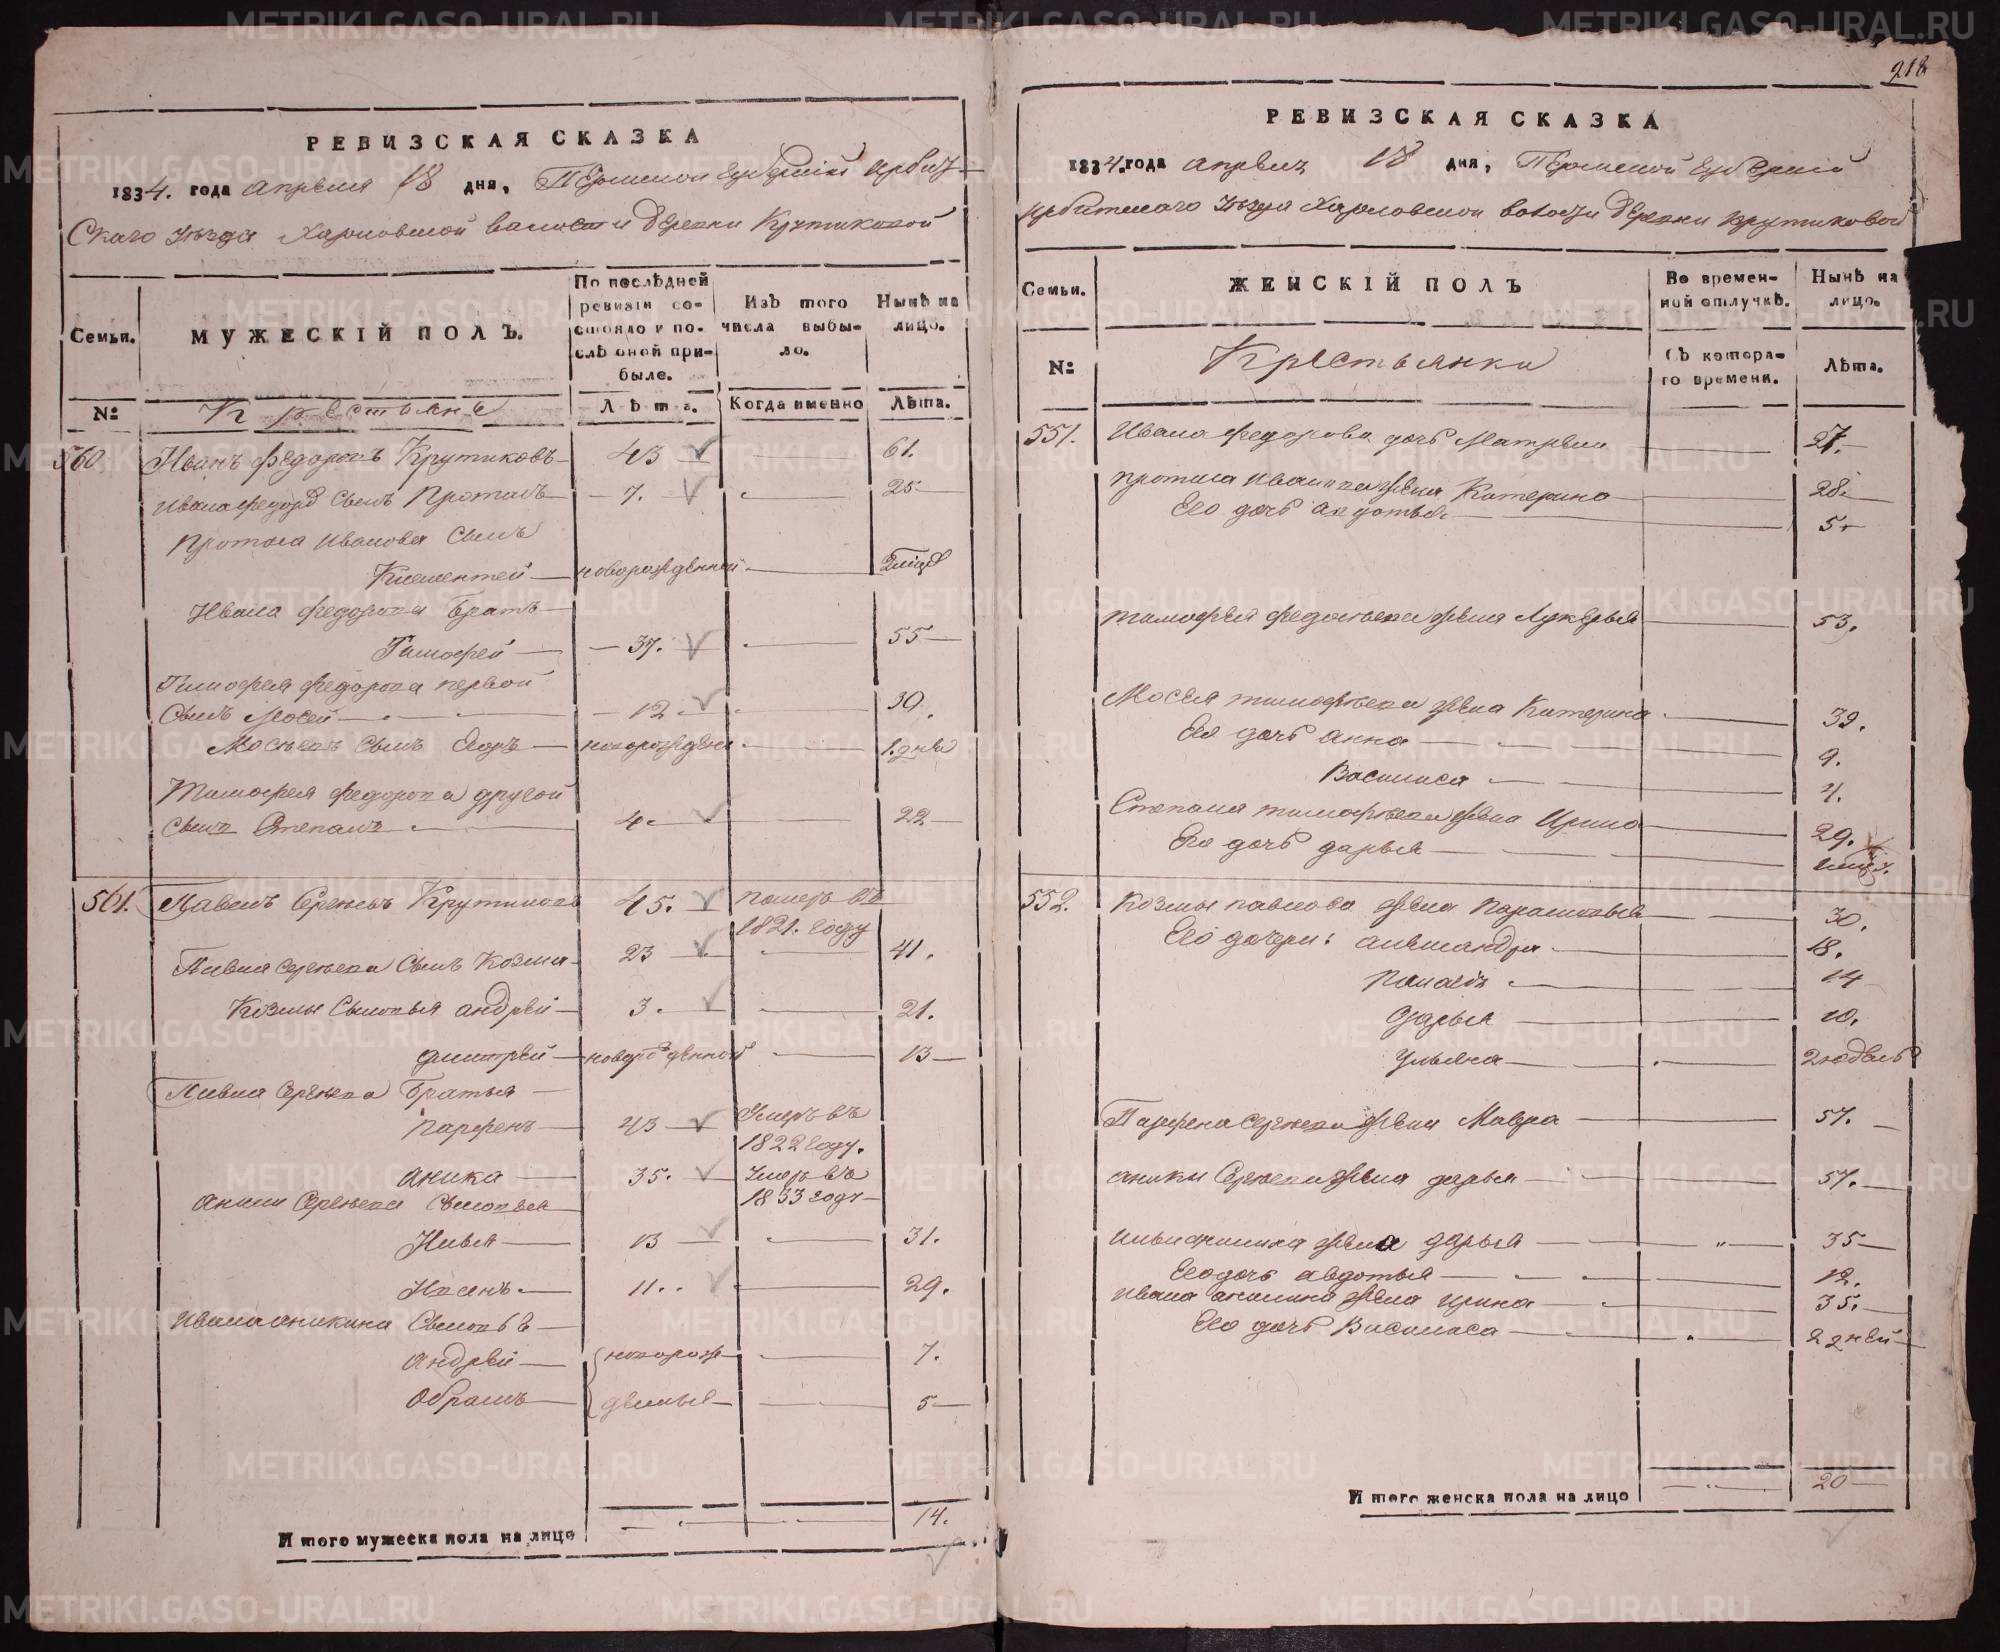 218
РЕВИЗСКАЯ СКАЗКА
1834. года апреля 18 дня, Пермской губернии ирбит-
скаго уезда Харловской валости деревни Крутиковой
Семьи.
МУЖЕСКІЙ ПОЛЪ.
По послѣдней ревизіи состояло и послѣ оной прибыле.
Изъ того числа выбыло.
Нынѣ на лицо.
№
Крестьяне
Лѣта.
Когда именно
Лѣта.
560. Иванъ федоровъ Крутиковъ 43 61.
Ивана федорова сынъ Протасъ 7. 25
Протаса иванова сынъ
Климентей новорожденной
Ивана федорова братъ
Тимофей 37. 55
Тимофея федорова первой
сынъ Мосей 12 30.
Мосеевъ сынъ Егоръ новорожденн
Тимофея федорова другой
сынъ Степанъ 4. 22
561. Павелъ Сергеевъ Крутиковъ 45. померъ въ
1821. году
Павла сергеева сынъ Козма 23 41.
Козмы сыновья андрей 3. 21.
дмитрей новорожденной 13
Павла Сергеева братья
парфенъ 43 умеръ въ
1822 году.
аника 35. умеръ въ
1833 году
аники Сергеева сыновья
Илья 13 31.
Иванъ 11. 29.
Ивана аникина сыновья
андрей новорож- 7.
обрамъ денныя 5
И того мужеска пола на лицо 14.
РЕВИЗСКАЯ СКАЗКА
1834. года апреля 18 дня, Пермской губернии
ирбитскаго уезда Харловской волости деревни крутиковой
Семьи.
ЖЕНСКІЙ ПОЛЪ
Во временной отлучкѣ.
Нынѣ на лицо.
№
Крестьянки
Съ котораго времени.
Лѣта.
551. Ивана федорова дочь Матрена 27.
протаса иванова жена Катерина 28.
Его дочь авдотья 5
тимофея федорова жена Лукерья 53.
Мосея тимофеева жена Катерина 39.
Его дочь анна 9.
Василиса 4.
Степана тимофеева жена Ирина 29.
Его дочь дарья
552. Козмы павлова жена парасковья 30.
Его дочери: александра 18.
14
дарья 10.
ульяна
Парфена сергеева жена Мавра 57.
аники Сергеева жена дарья 57.
ильи аникина жена дарья 35
Его дочь авдотья 12.
ивана аникина жена ирина 35.
Его дочь Василиса 2 дней
И того женска пола на лицо 20
METRIKI.GASO-URAL.RU